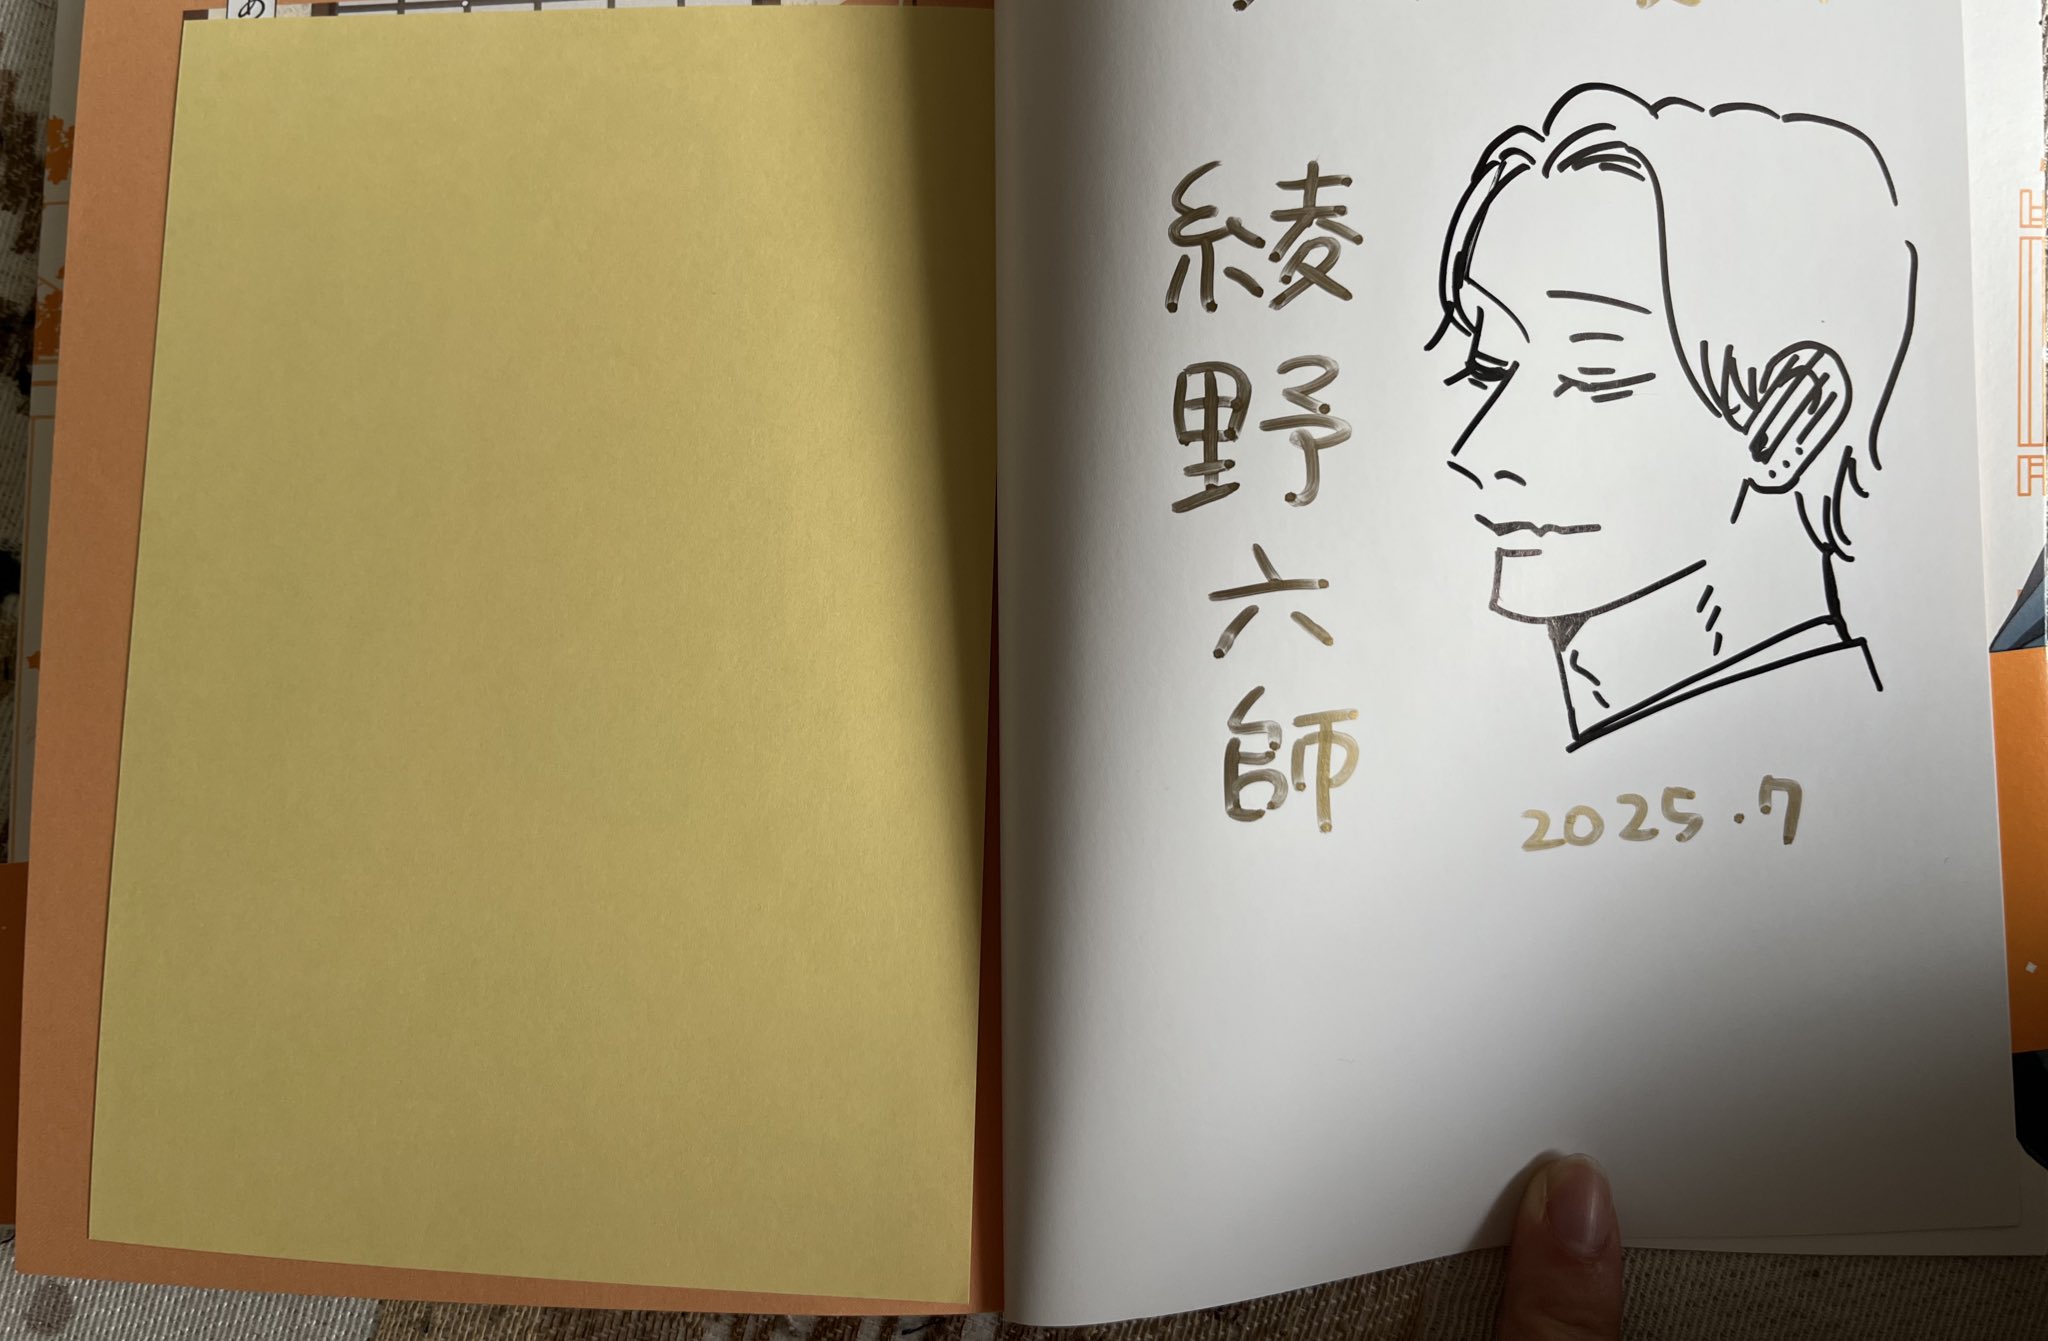 綾野六師
2025.7
め